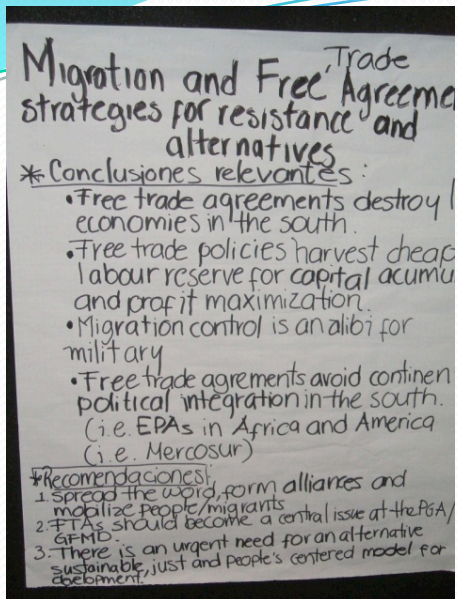 Migration and Free Trade Agreeme
strategies for resistance and
alternatives
* Conclusiones relevantes:
• Free trade agreements destroy l
economies in the south.
• Free trade policies harvest cheap
labour reserve for capital acumu
and profit maximization.
• Migration control is an alibi for
military
• Free trade agrements avoid continen
political integration in the south.
(i.e. EPAs in Africa and America
(i.e. Mercosur)
* Recomendaciones:
1. Spread the word, form alliances and
mobilize people/migrants
2. FTAs should become a central issue at the PGA/
GFMD.
3. There is an urgent need for an alternative
sustainable, just and people's centered model for